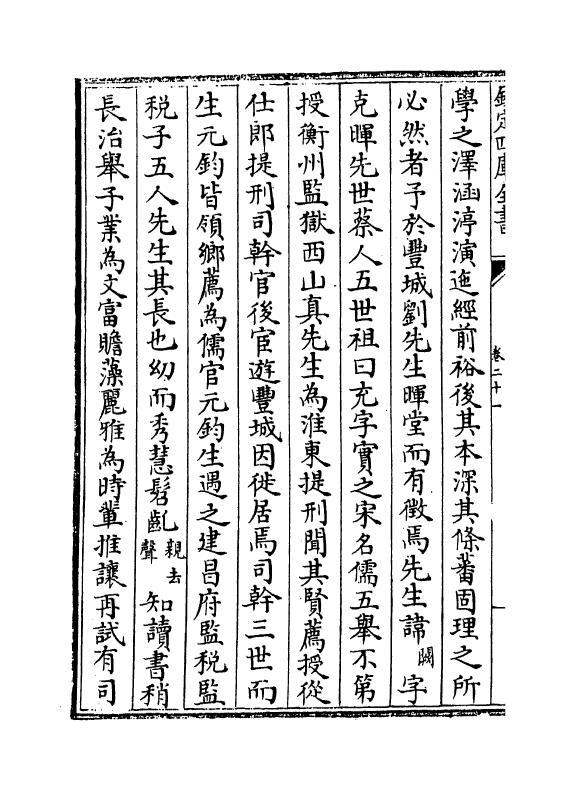 欽定四庫全書
卷二十一
學之澤涵渟演迤經前裕後其本深其條蕃固理之所
必然者予於豐城劉先生暉堂而有徵焉先生諱闕字
克暉先世蔡人五世祖曰充字實之宋名儒五舉不第
授衡州監獄西山真先生為淮東提刑聞其賢薦授從
仕郎提刑司幹官後宦遊豐城因徙居焉司幹三世而
生元鈞皆領鄉薦為儒官元鈞生遇之建昌府監税監
税子五人先生其長也幼而秀慧髫齔親去聲知讀書稍
長治舉子業為文富贍藻麗雅為時輩推讓再試有司